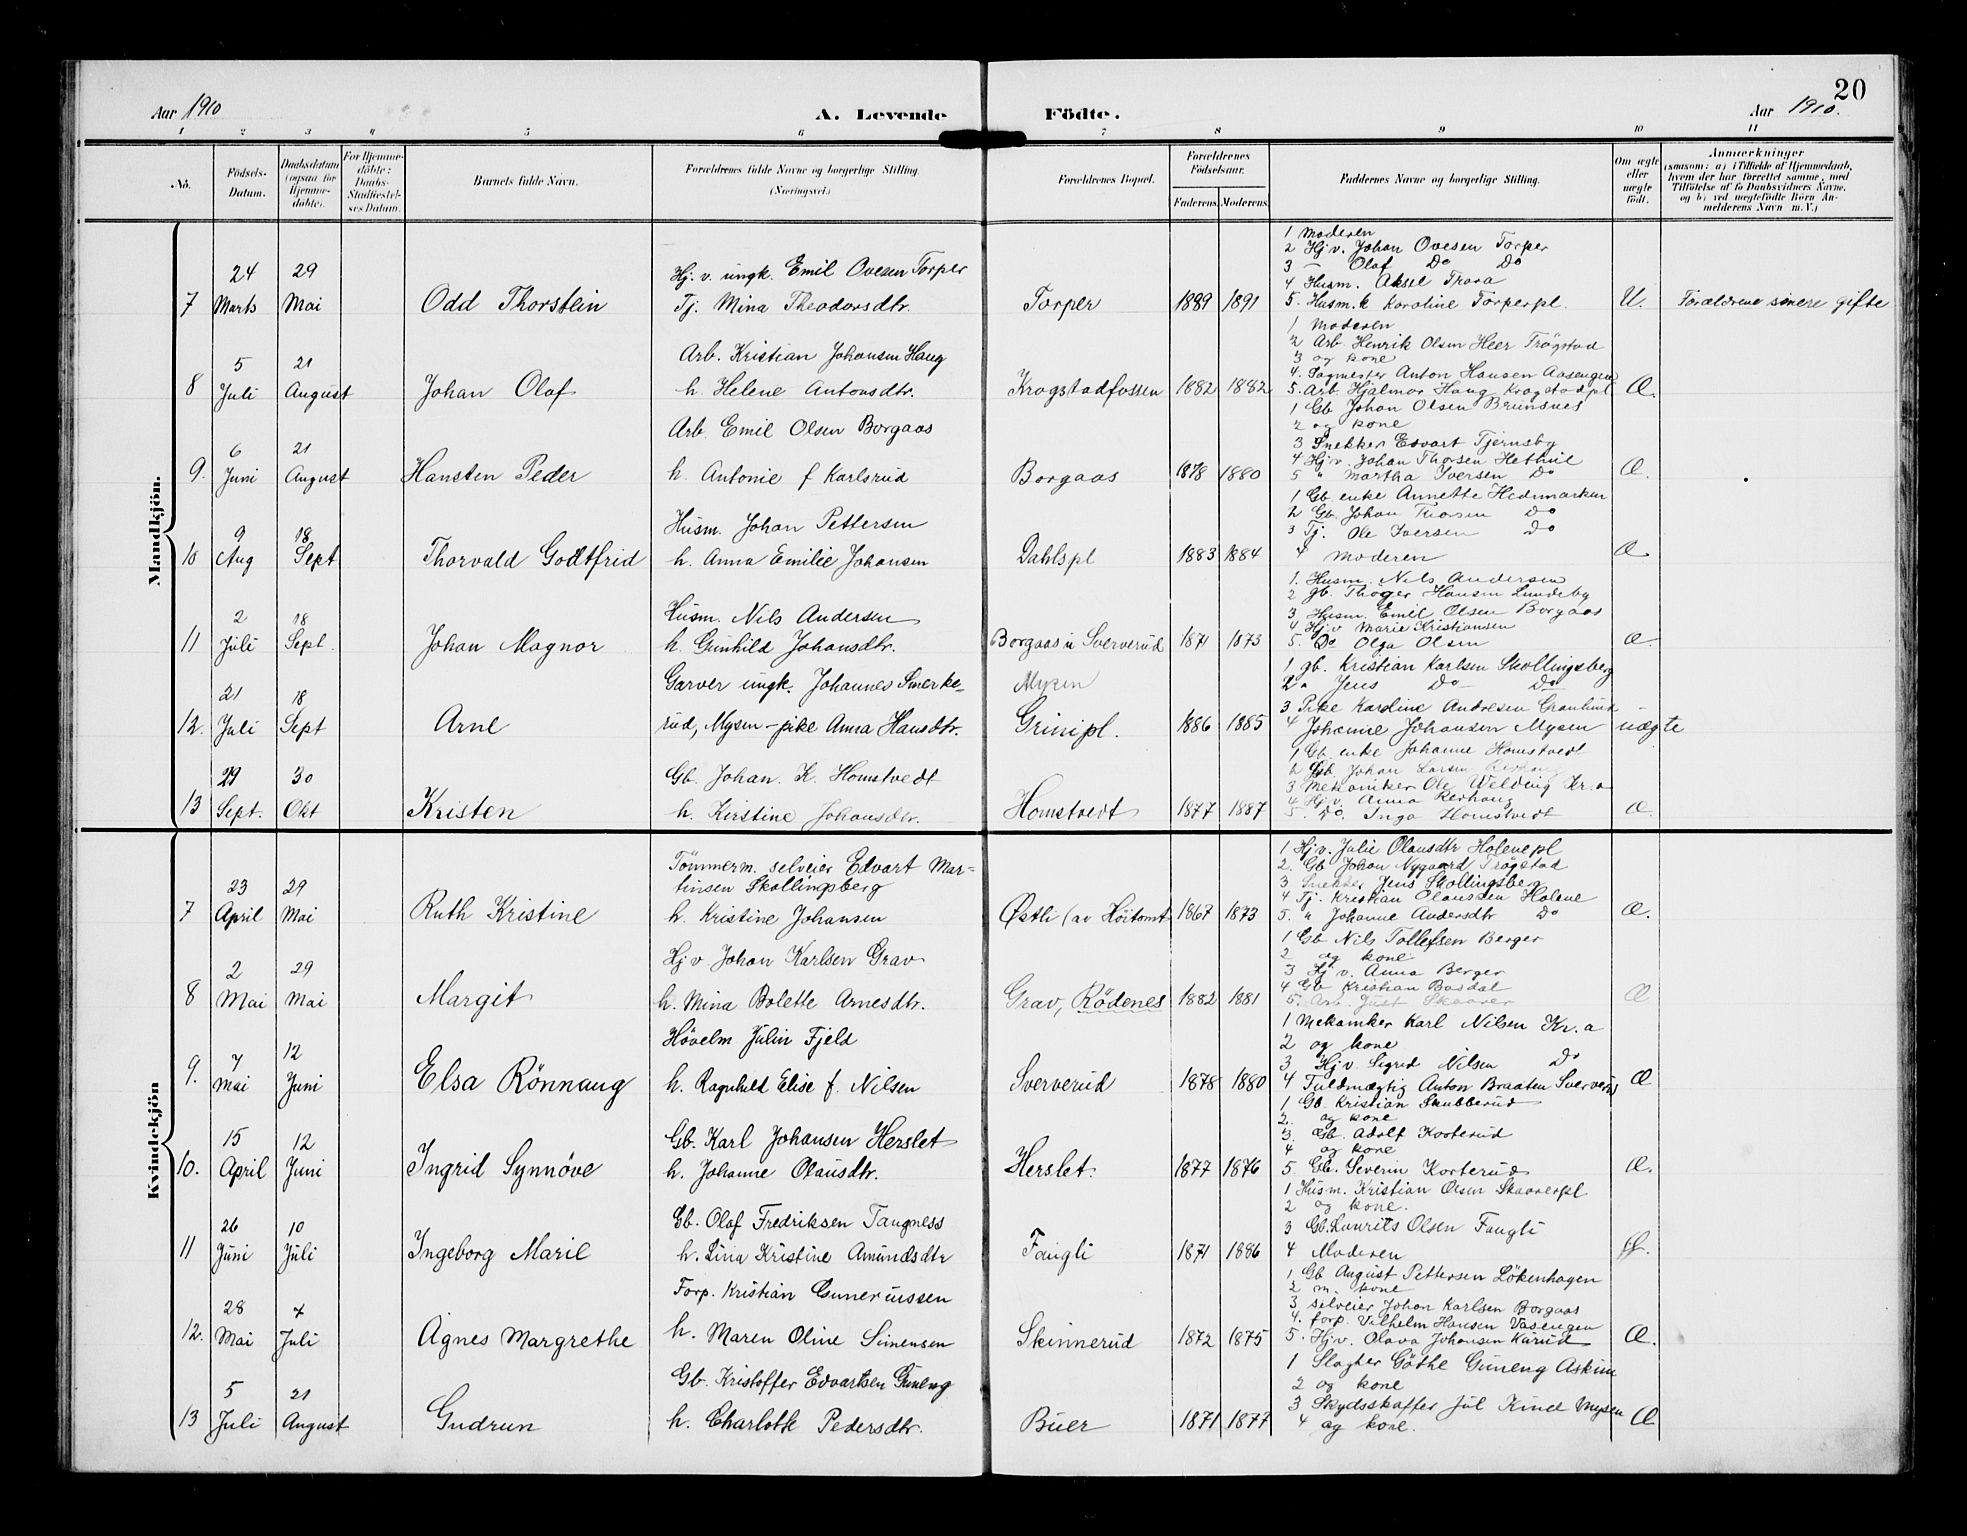 20
Aar 1910 A. Levende Födte. Aar 1910.
1 2 3 4 5 6 7 8 9 10 11
No. Födsels-Datum. Daabsdatum (ogsaa for Hjemmedöbte). For Hjemmedöbte: Daabs-Stadfæstelses Datum. Barnets fulde Navn. Forældrenes fulde Navne og borgerlige Stilling. (Næringsvei.) Forældrenes Bopæl. Forældrenes Födselsaar. Faderens. Moderens. Faddernes Navne og borgerlige Stilling. Om ægte eller uægte födt. Anmærkninger (saasom: a) i Tilfælde af Hjemmedaab, hvem der har forrettet samme, med Tilföielse af to Daabsvidners Navne, og b) ved uægtefödte Börn Anmelderens Navn m. V.)
Mandkjön.
7 24 Marts 29 Mai Odd Thorstein
Hj. v. ungk. Emil Ovesen Torper
Tj. Mina Theodorsdtr.
Torper 1889 1891
1 Moderen
2 Hj v. Johan Ovesen Torper
3 – Olaf Do Do
4 Husm. Aksel Trara
5. Husm. k Karoline Torperpl.
U. Forældrene senere gifte
8 5 Juli 21 August Johan Olaf
Arb. Kristian Johansen Haug
h. Helene Antonsdtr.
Krogstadfossen 1882 1882
1 Moderen
2 Arb Henrik Olsen Heer Trögstad
3 og kone
4. Sagmester Anton Hansen Aasengen
5. Arb. Hjalmar Haug Krogstadpl
Æ.
9. 6 Juni 21 August Hansten Peder
Arb. Emil Olsen Borgaas
h. Antonie f Karlsrud
Borgaas 1878 1880
1 Gb Johan Olsen Brunsnes
2 og kone
3 Snekker Edvart Tjernsby
4 Hj v. Johan Thorsen
5 " Martha Iversen Do
Æ.
10 9 Aug 18 Sept Thorvald Godtfrid
Husm. Johan Pettersen
h. Anna Emilie Johansen
Dahlspl 1883 1884
1 Gb. enke Annette Hedenmarken
2 Gb. Johan Thorsen Do
3 Tj. Ole Iversen Do
4 Moderen
Æ.
11 2 Juli 18 Sept. Johan Magnor
Husm. Nils Andersen
h. Gunhild Johansdtr.
Borgaas u Sververud 1871 1873
1. Husm. Nils Andersen
2 gb. Thoger Hansen Lundeby
3 Husm. Emil Olsen Borgaas
4 Hj v Marie Kristiansen
5. Do Olga Olsen
Æ.
12. 21 Juli 18 Sept Arne
Garver ungk. Johannes Smerke-
rud, Mysen – pike Anna Hansdtr.
Mysen
Grinipl. 1886 1885
1 gb. Kristian Karlsen Skollingsberg
2 " Jens Do Do
3 Pike Karoline Andresen Granlund
4 Johanne Johansen Mysen
uægte
13 29 Sept. 30 Okt Kristen
Gb. Johan. K. Homstvedt
h. Kirstine Johansdtr.
Homstvedt 1877 1887
1 Gb. enke Johanne Homstvedt
2 Gb. Johan Larsen
3 Mekaniker Ole Welding Kr.a
4 Hj v. Anna Rerhaug
5. Do. Inga Homstvedt
Æ.
Kvindekjön
7 23 April 29 Mai Ruth Kristine
Tömmerm. selveier Edvart Mar-
tinsen Skollingsberg
h. Kristine Johansen
Østli (av Höitomt 1867 1873
1 Hj v. Julie Olausdtr Holenepl
2. Gb Johan Nygaard Trögstad
3 Snekker Jens Skollingsberg
4 Tj. Kristian Olaussen Holene
5. " Johanne Andersdtr Do
Æ.
8 2 Mai 29 Mai Margit
Hj v Johan Karlsen Grav
h. Mina Bolette Arnesdtr.
Grav, Rödenes 1882 1881
1 Gb Nils Tollefsen Berger
2 og kone
3 Hj v. Anna Berger
4 Gb Kristian Basdal
5. Arb. Just Skaarer
Æ
9. 7 Mai 12 Juni Elsa Rönnaug
Hövelm Julin Fjeld
h. Ragnhild Elise f. Nilsen
Sververud 1878 1880
1 Mekaniker Karl Nilsen Kr.a
2 og kone
3 Hj v. Sigrid Nilsen Do
4 Fuldmægtig Anton Braaten Sververud
Æ
10. 15 April 12 Juni Ingrid Synnöve
Gb. Karl Johansen Herslet
h. Johanne Olausdtr.
Herslet. 1877 1876
1 Gb. Kristian Skubberud
2. og kone
3. Gb. Adolf Korterud
4 og kone
5 Gb. Severin Korterud
Æ.
11 26 Juni 10 Juli Ingeborg Marie
Gb. Olaf Fredriksen Taugness
h. Lina Kristine Amundsdtr
Faugli 1871 1886
1 Husm. Kristian Olsen Skaarerpl
2 og kone.
3 Gb. Laurits Olsen Faugli
4 Moderen
Æ.
12. 28 Mai 7 Juli Agnes Margrethe
Forp. Kristian Gunerussen
h. Maren Oline Simensen
Skinnerud 1872 1875
1 Gb August Pettersen Lökenhagen
2 m. kone
3 selveier Johan Karlsen Borgaas
4. forp. Vilhelm Hansen Vasengen
5. Hj v. Olava Johansen Karud
Æ.
13 5 Juli 21 August Gudrun
Gb. Kristoffer Edvartsen Guneng
h. Charlotte Pedersdtr.
Buer 1871 1877
1 Slagter Göthe Guneng Askim
2 og kone
3 Skydsskaffer Jul Kind Mysen
4 og kone.
Æ